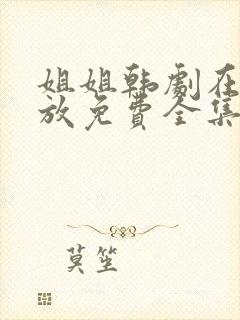 姐姐韩剧在
放免费全集
莫笙